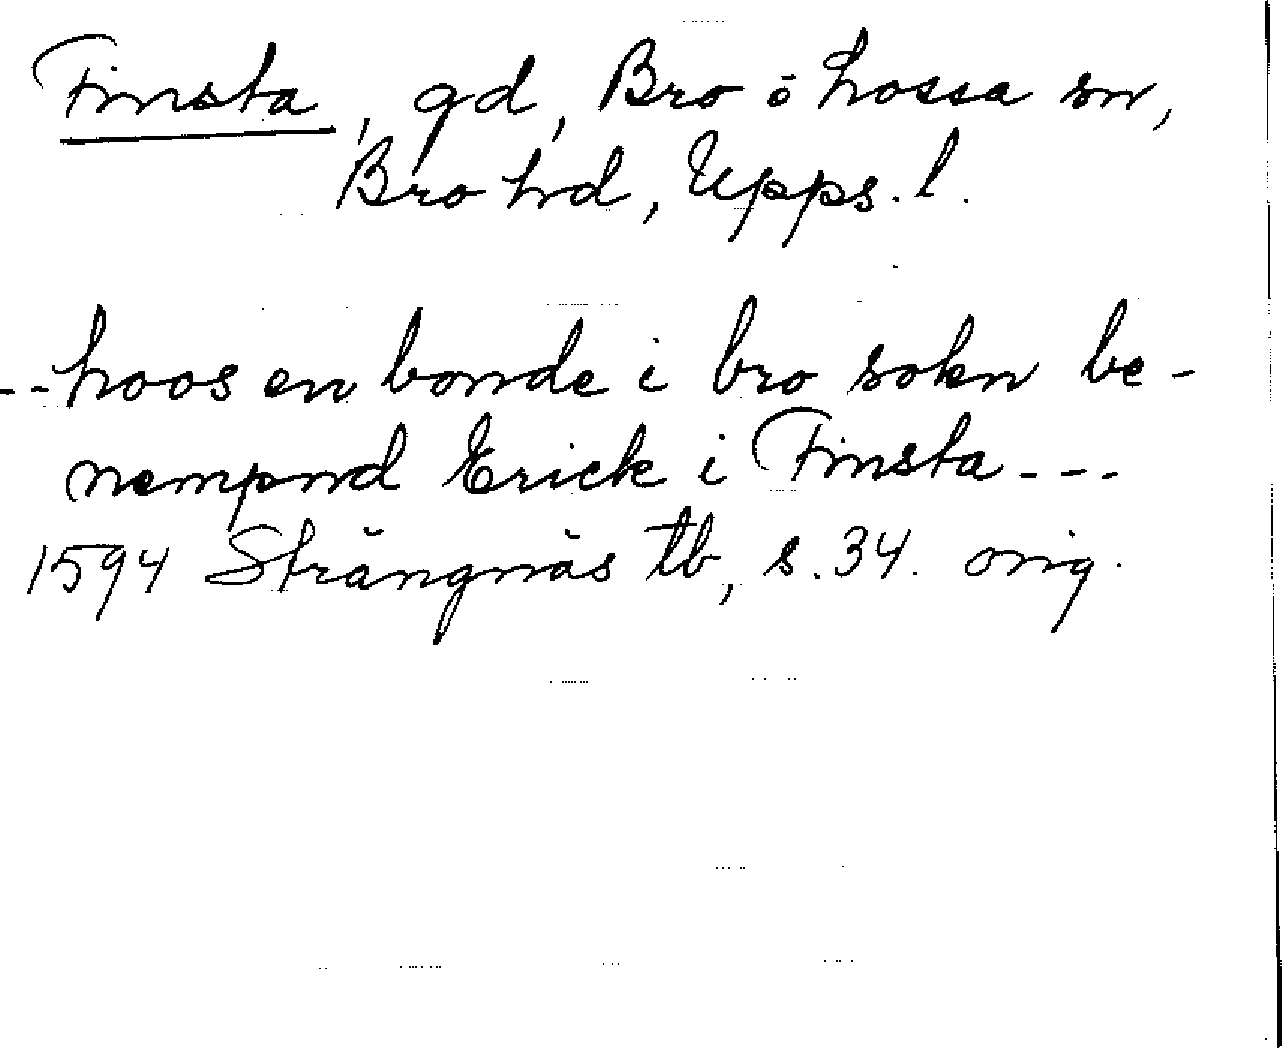 Finsta, gd, Bro o Lossa sn,
Bro hd, Upps. l.
--hoos en bonde i bro sokn be-
nempnd Erick i Finsta---
1594 Strängnäs tb, s. 34. orig.